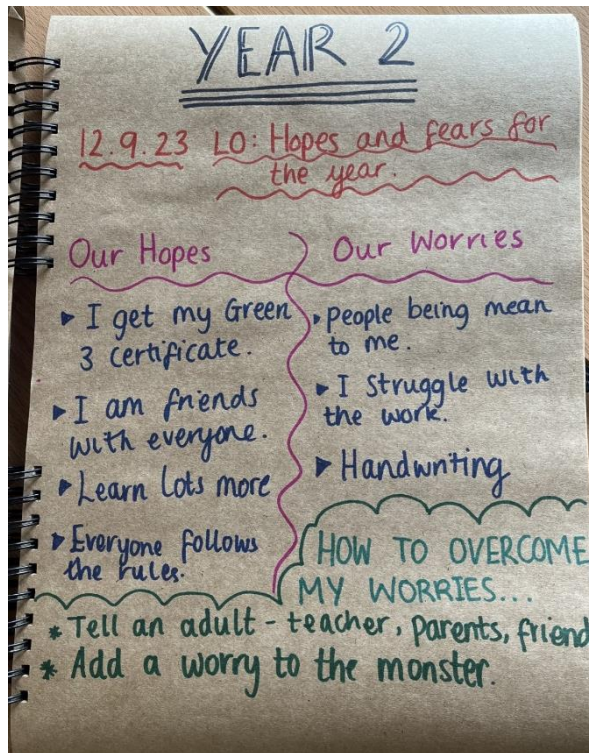 YEAR 2
12.9.23 LO: Hopes and fears for
the year.
Our Hopes
▸ I get my Green
3 certificate.
▸ I am friends
with everyone.
▸ Learn lots more
▸ Everyone follows
the rules.
Our Worries
▸ People being mean
to me.
▸ I struggle with
the work.
▸ Handwriting
HOW TO OVERCOME
MY WORRIES...
* Tell an adult - teacher, parents, friend
* Add a worry to the monster.